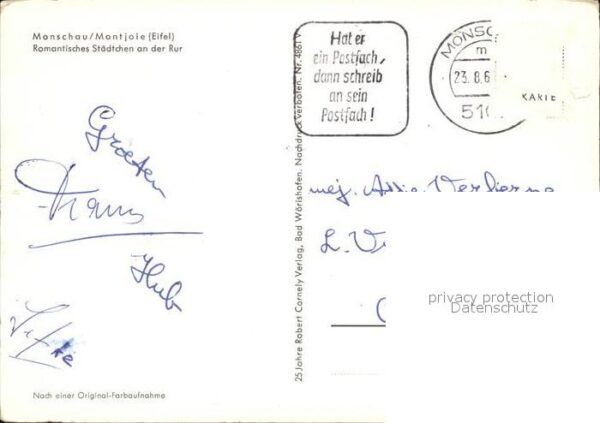 Monschau/Montjoie (Eifel)
Romantisches Städtchen an der Rur
Groeten
Hub
Nach einer Original-Farbaufnahme
25 Jahre Robert Cornely Verlag, Bad Wörishofen. Nachdruck verboten. Nr. 4861 V
Hat er
ein Postfach,
dann schreib
an sein
Postfach!
MONSC
m
23.8.6
510
KARTE
mej.
L. V
privacy protection
Datenschutz